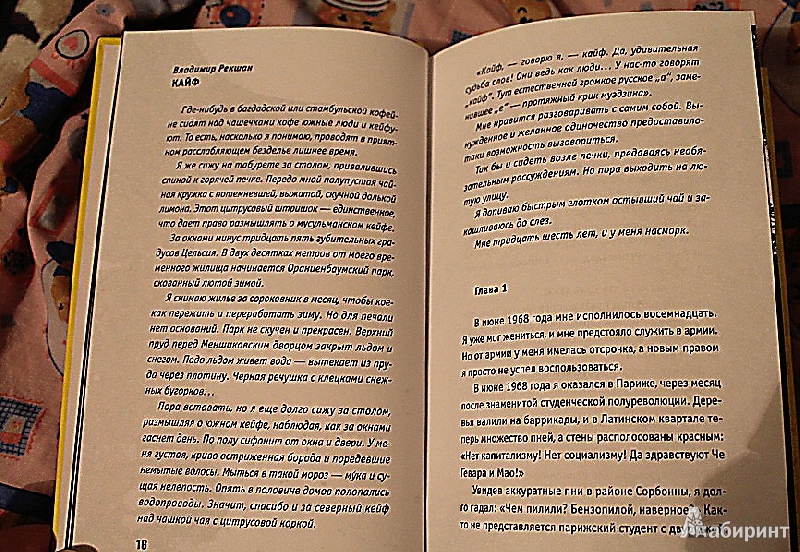 Владимир Рекшан
КАЙФ
Где-нибудь в багдадской или стамбульской кофей-
не сидят над чашечками кофе южные люди и кейфу-
ют. То есть, насколько я понимаю, проводят в прият-
ном расслабляющем безделье лишнее время.
Я же сижу на табурете за столом, привалившись
спиной к горячей печке. Передо мной полупустая чай-
ная кружка с потемневшей, выжатой, скучной долькой
лимона. Этот цитрусовый штришок — единственное,
что дает право размышлять о мусульманском кейфе.
За окнами минус тридцать пять губительных гра-
дусов Цельсия. В двух десятках метров от моего вре-
менного жилища начинается Ораниенбаумский парк,
скованный лютой зимой.
Я снимаю жилье за сороковник в месяц, чтобы кое-
как пережить и переработать зиму. Но для печали
нет оснований. Парк не скучен и прекрасен. Верхний
пруд перед Меншиковским дворцом закрыт льдом и
снегом. Подо льдом живет вода — вытекает из пру-
да через плотину. Черная речушка с клецками снеж-
ных бугорков...
Пора вставать, но я еще долго сижу за столом,
размышляя о южном кейфе, наблюдая, как за окнами
гаснет день. По полу сифонит от окна и двери. У ме-
ня густая, криво остриженная борода и поредевшие
немытые волосы. Мыться в такой мороз — мука и су-
щая нелепость. Опять в половине домов полопались
водопроводы. Значит, спасибо и за северный кейф
над чашкой чая с цитрусовой коркой.
18
«Кайф, — говорю я, — кайф. Да, удивительная
судьба слов! Они ведь как люди... У нас-то говорят
„кайф“. Тут естественной громкое русское „а“, заме-
нившее „е“ — протяжный крик муэдзина».
Мне нравится разговаривать с самим собой. Вы-
нужденное и желанное одиночество предоставило-
таки возможность выговориться.
Так бы и сидеть возле печки, предаваясь необя-
зательным рассуждениям. Но пора выходить на лю-
тую улицу.
Я допиваю быстрым глотком остывший чай и за-
кашливаюсь до слез.
Мне тридцать шесть лет, и у меня насморк.
Глава 1
В июне 1968 года мне исполнилось восемнадцать.
Я уже мог жениться, и мне предстояло служить в армии.
Но от армии у меня имелась отсрочка, а новым правом
я просто не успел воспользоваться.
В июне 1968 года я оказался в Париже, через месяц
после знаменитой студенческой полуреволюции. Дере-
вья валили на баррикады, и в Латинском квартале те-
перь множество пней, а стены располосованы красным:
«Нет капитализму! Нет социализму! Да здравствуют Че
Гевара и Мао!»
Увидев аккуратные пни в районе Сорбонны, я дол-
го гадал: «Чем пилили? Бензопилой, наверное». Как-
то не представляется парижский студент с дву
Лабиринт